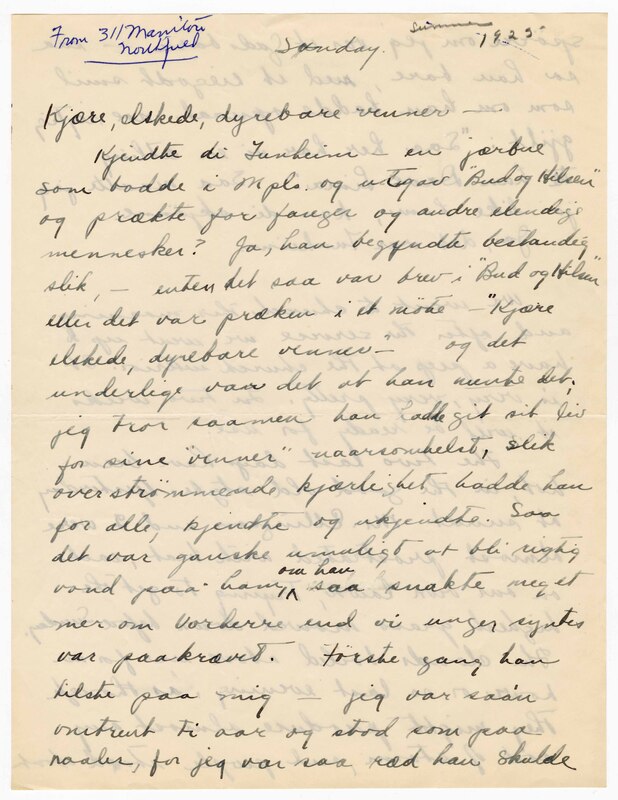 From 311 Manitou
Northfield
Summer
1925
Sunday.
Kjære, elskede, dyrebare venner —
Kjendte di Tunheim — en "jærbue"
som bodde i Mpls. og utgav "Bud og Hilsen"
og prækte for fanger og andre elendige
mennesker? Ja, han begyndte bestandig
slik, — enten det saa var brev i "Bud og Hilsen"
eller det var præken i et møte — "Kjære
elskede, dyrebare venner" — og det
underlige var det at han mente det;
jeg tror saamen han hadde git sit liv
for sine "venner" naarsomhelst, slik
overstrømmende kjærlighet hadde han
for alle, kjendte og ukjendte. Saa
det var ganske umuligt at bli rigtig
vond paa ham, om han saa snakte meget
mer om Vorherre end vi unger syntes
var paakrævet. Første gang han
hilste paa mig — jeg var saan
omtrent ti aar og stod som paa
naaler, for jeg var saa ræd han skulde